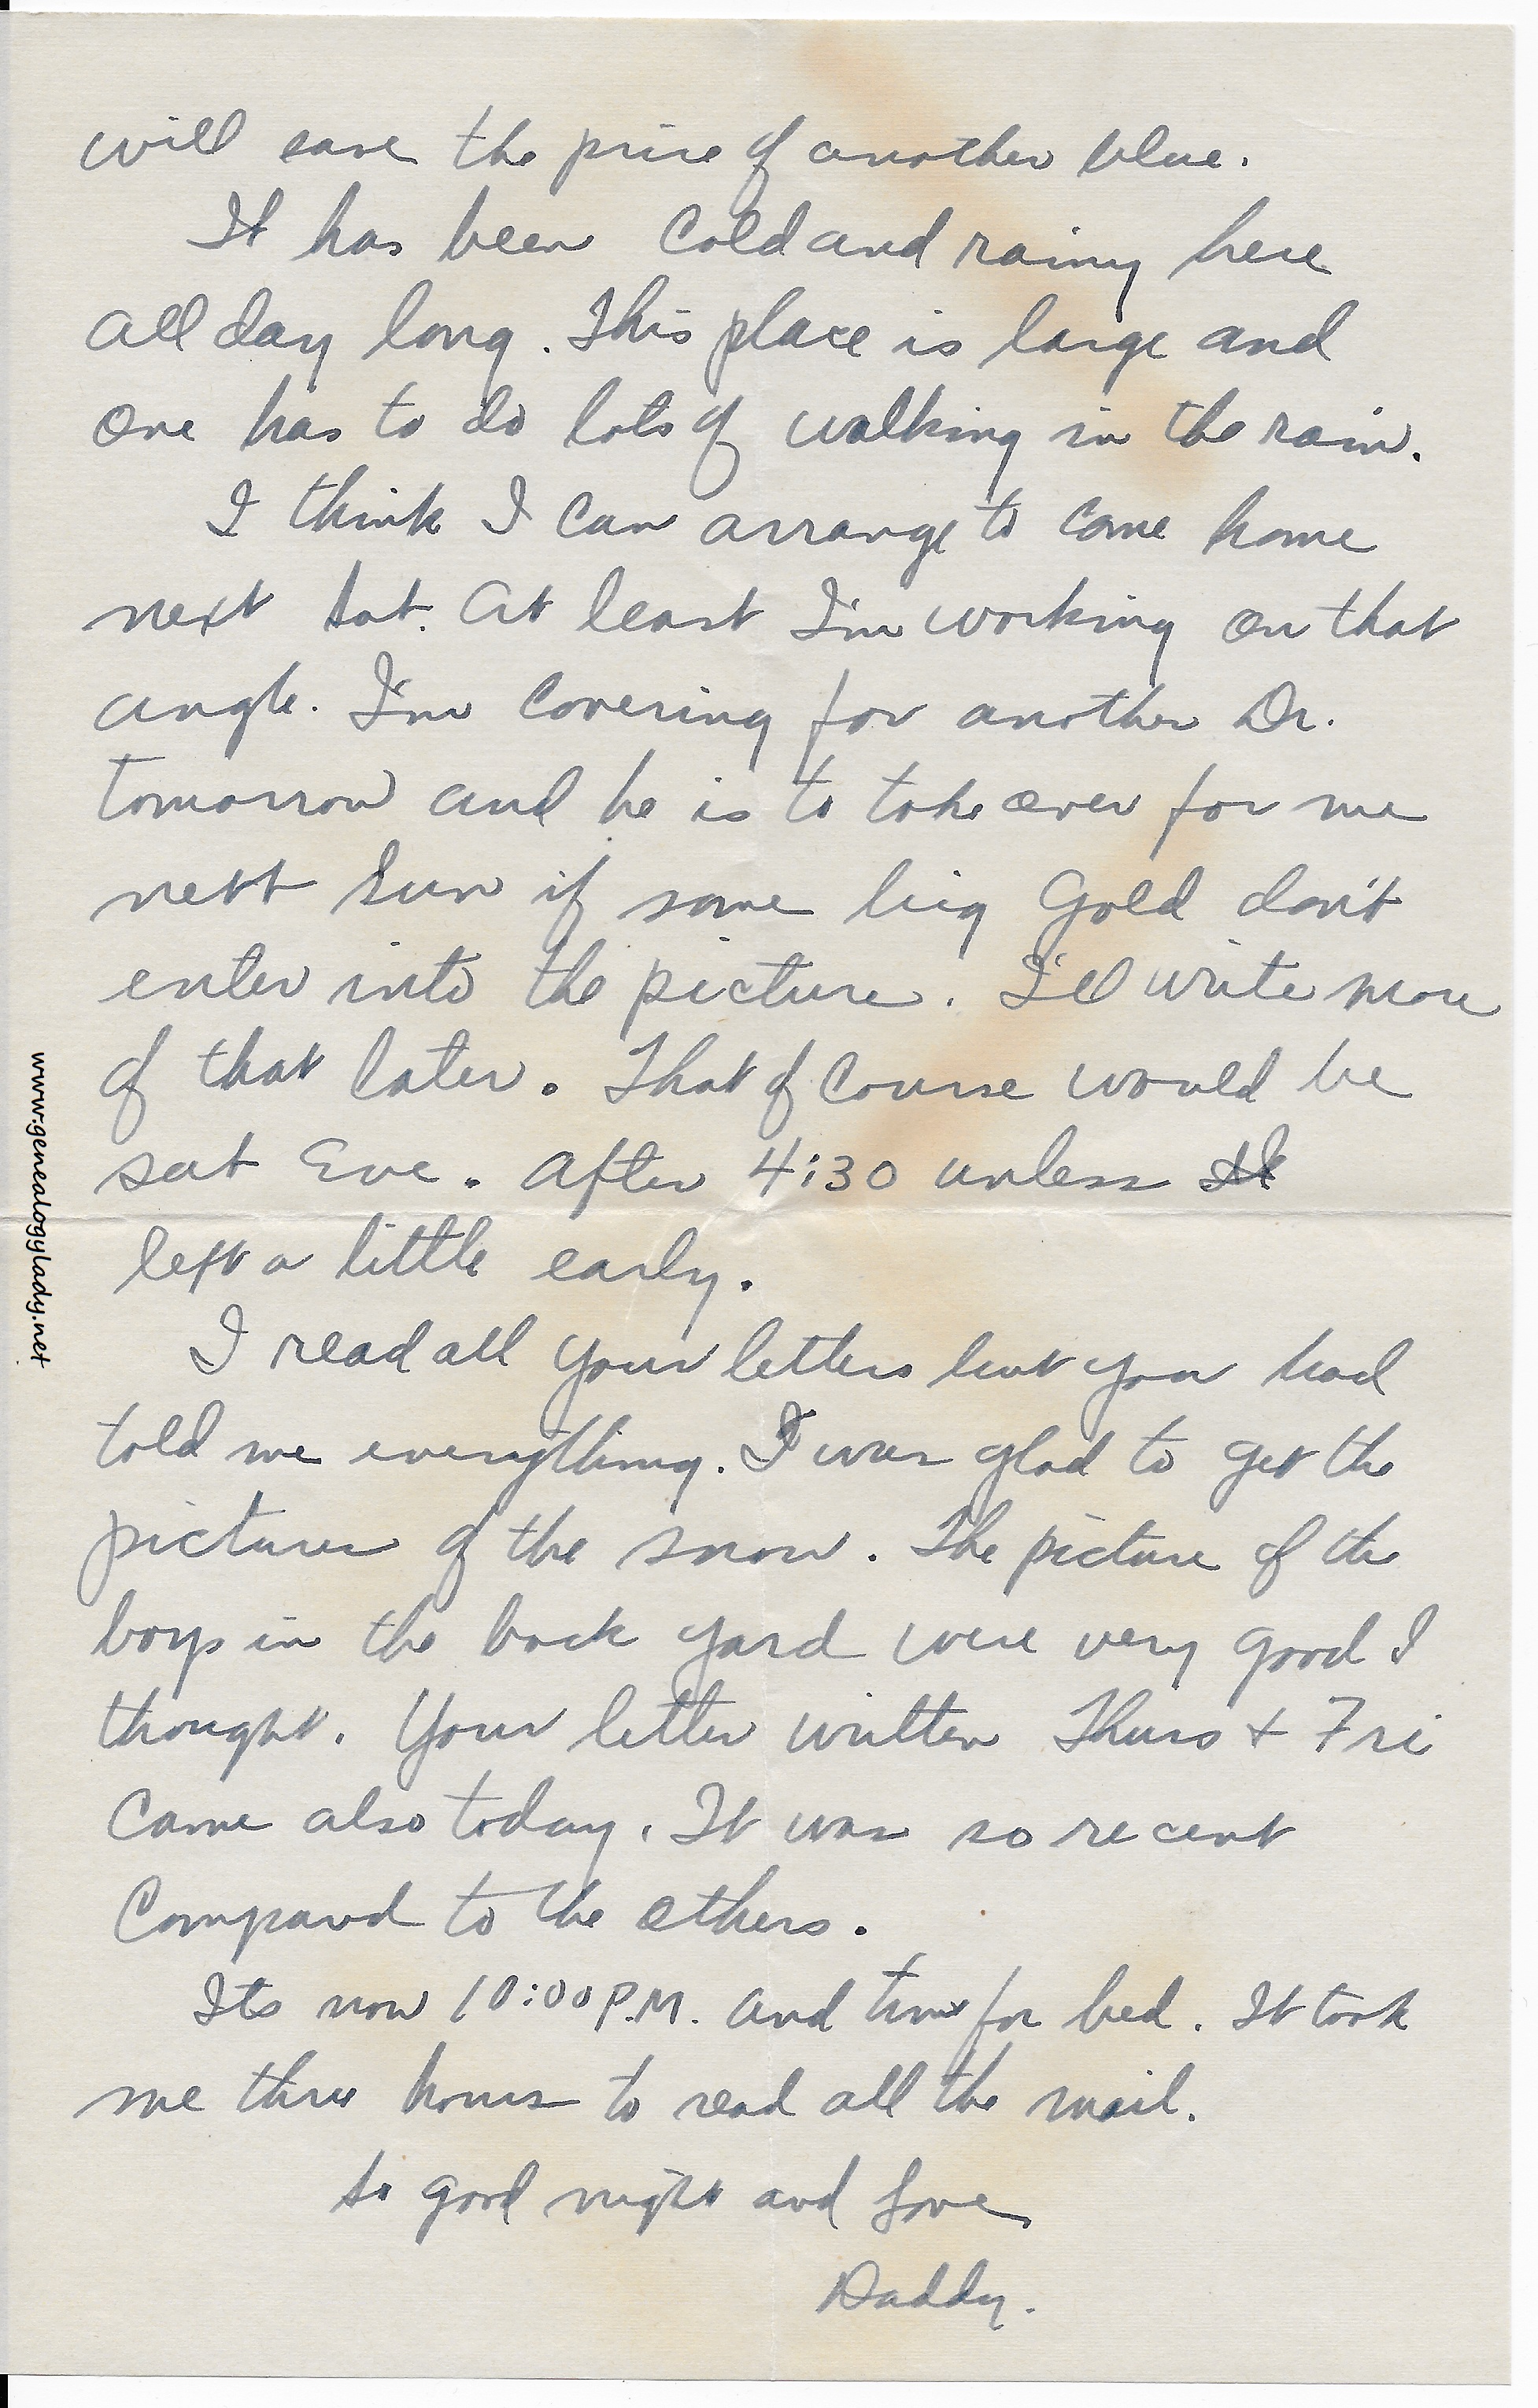 will save the price of another blue.
It has been cold and rainy here
all day long. This place is large and
one has to do lots of walking in the rain.
I think I can arrange to come home
next Sat. At least I'm working on that
angle. I'm covering for another Dr.
tomorrow and he is to take over for me
next Sun if some big Gold don't
enter into the picture. I'll write more
of that later. That of course would be
Sat Eve. After 4:30 unless I
left a little early.
I read all your letters but you had
told me everything. I was glad to get the
pictures of the snow. The picture of the
boys in the back yard were very good I
thought. Your letter written Thurs + Fri
came also today. It was so recent
compared to the others.
Its now 10:00 P.M. and time for bed. It took
me three hours to read all the mail.
So good night and Love
Daddy.
www.genealogylady.net